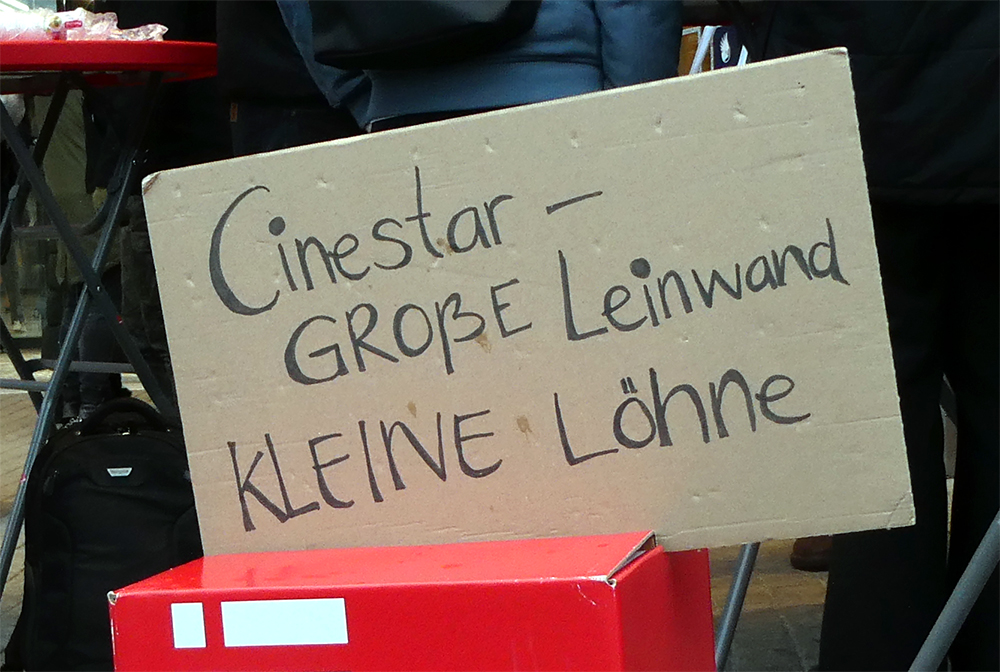 Cinestar –
GROßE Leinwand
KLEINE Löhne